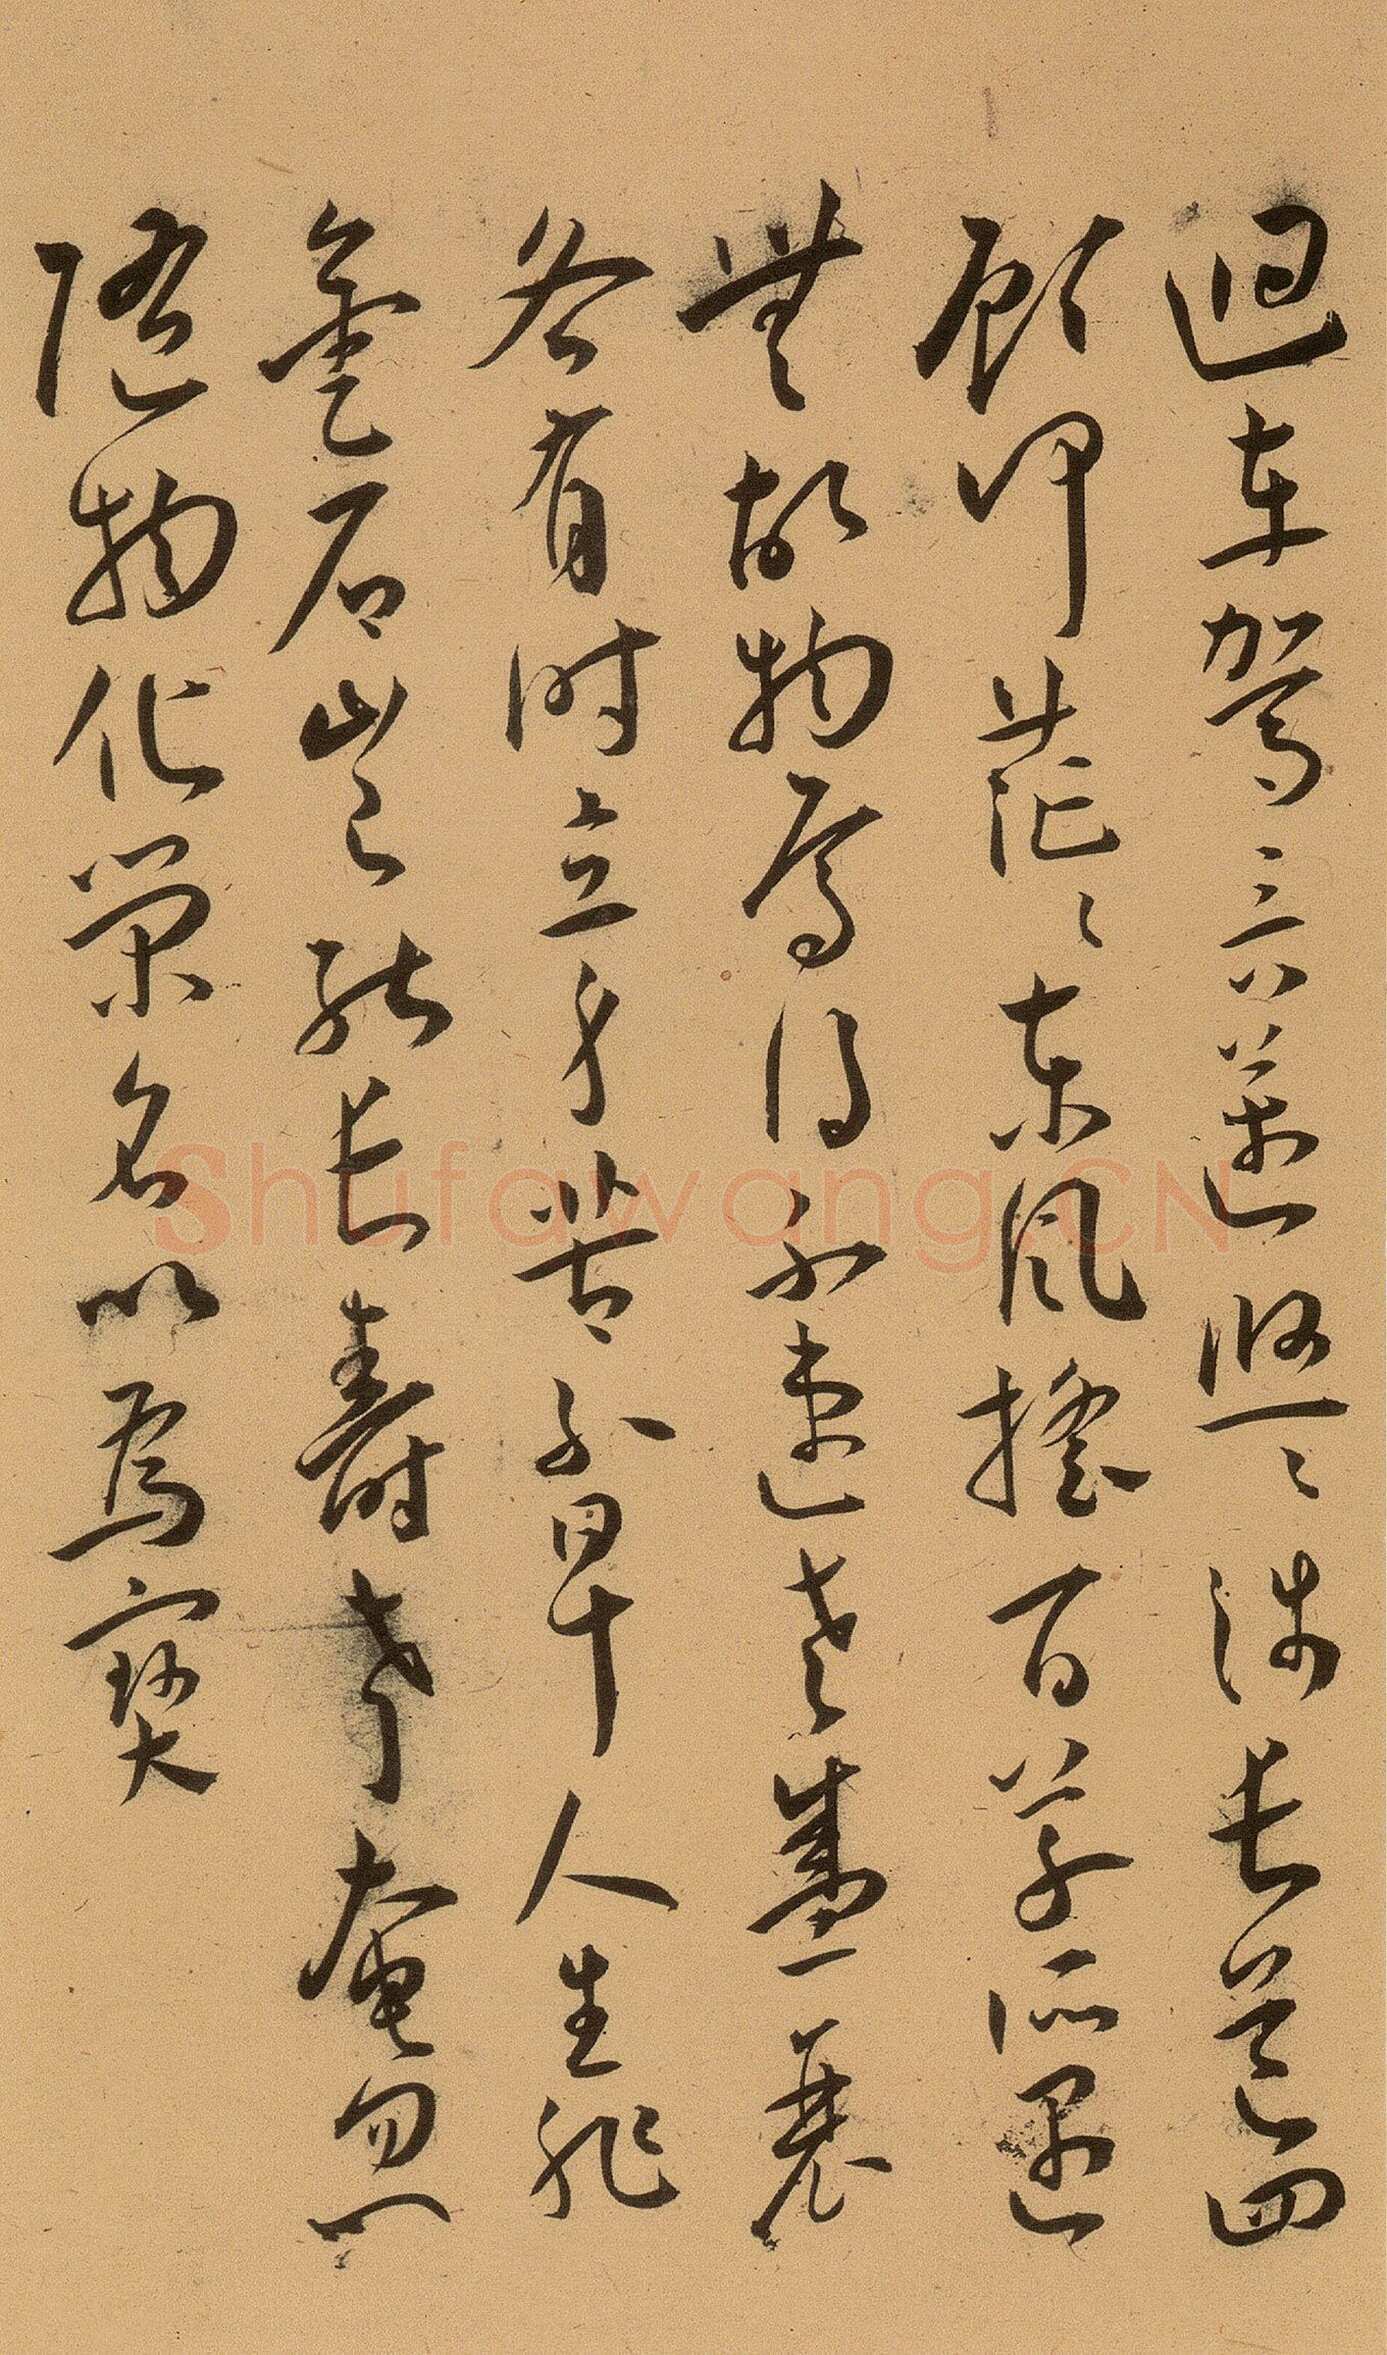 迴車駕言邁悠〻涉長道四
顧何茫〻東風搖百草所遇
無故物焉得不速老盛衰
各有時立身苦不早人生非
金石豈能長壽考奄忽
隨物化榮名以為寶
Shufawang.CN